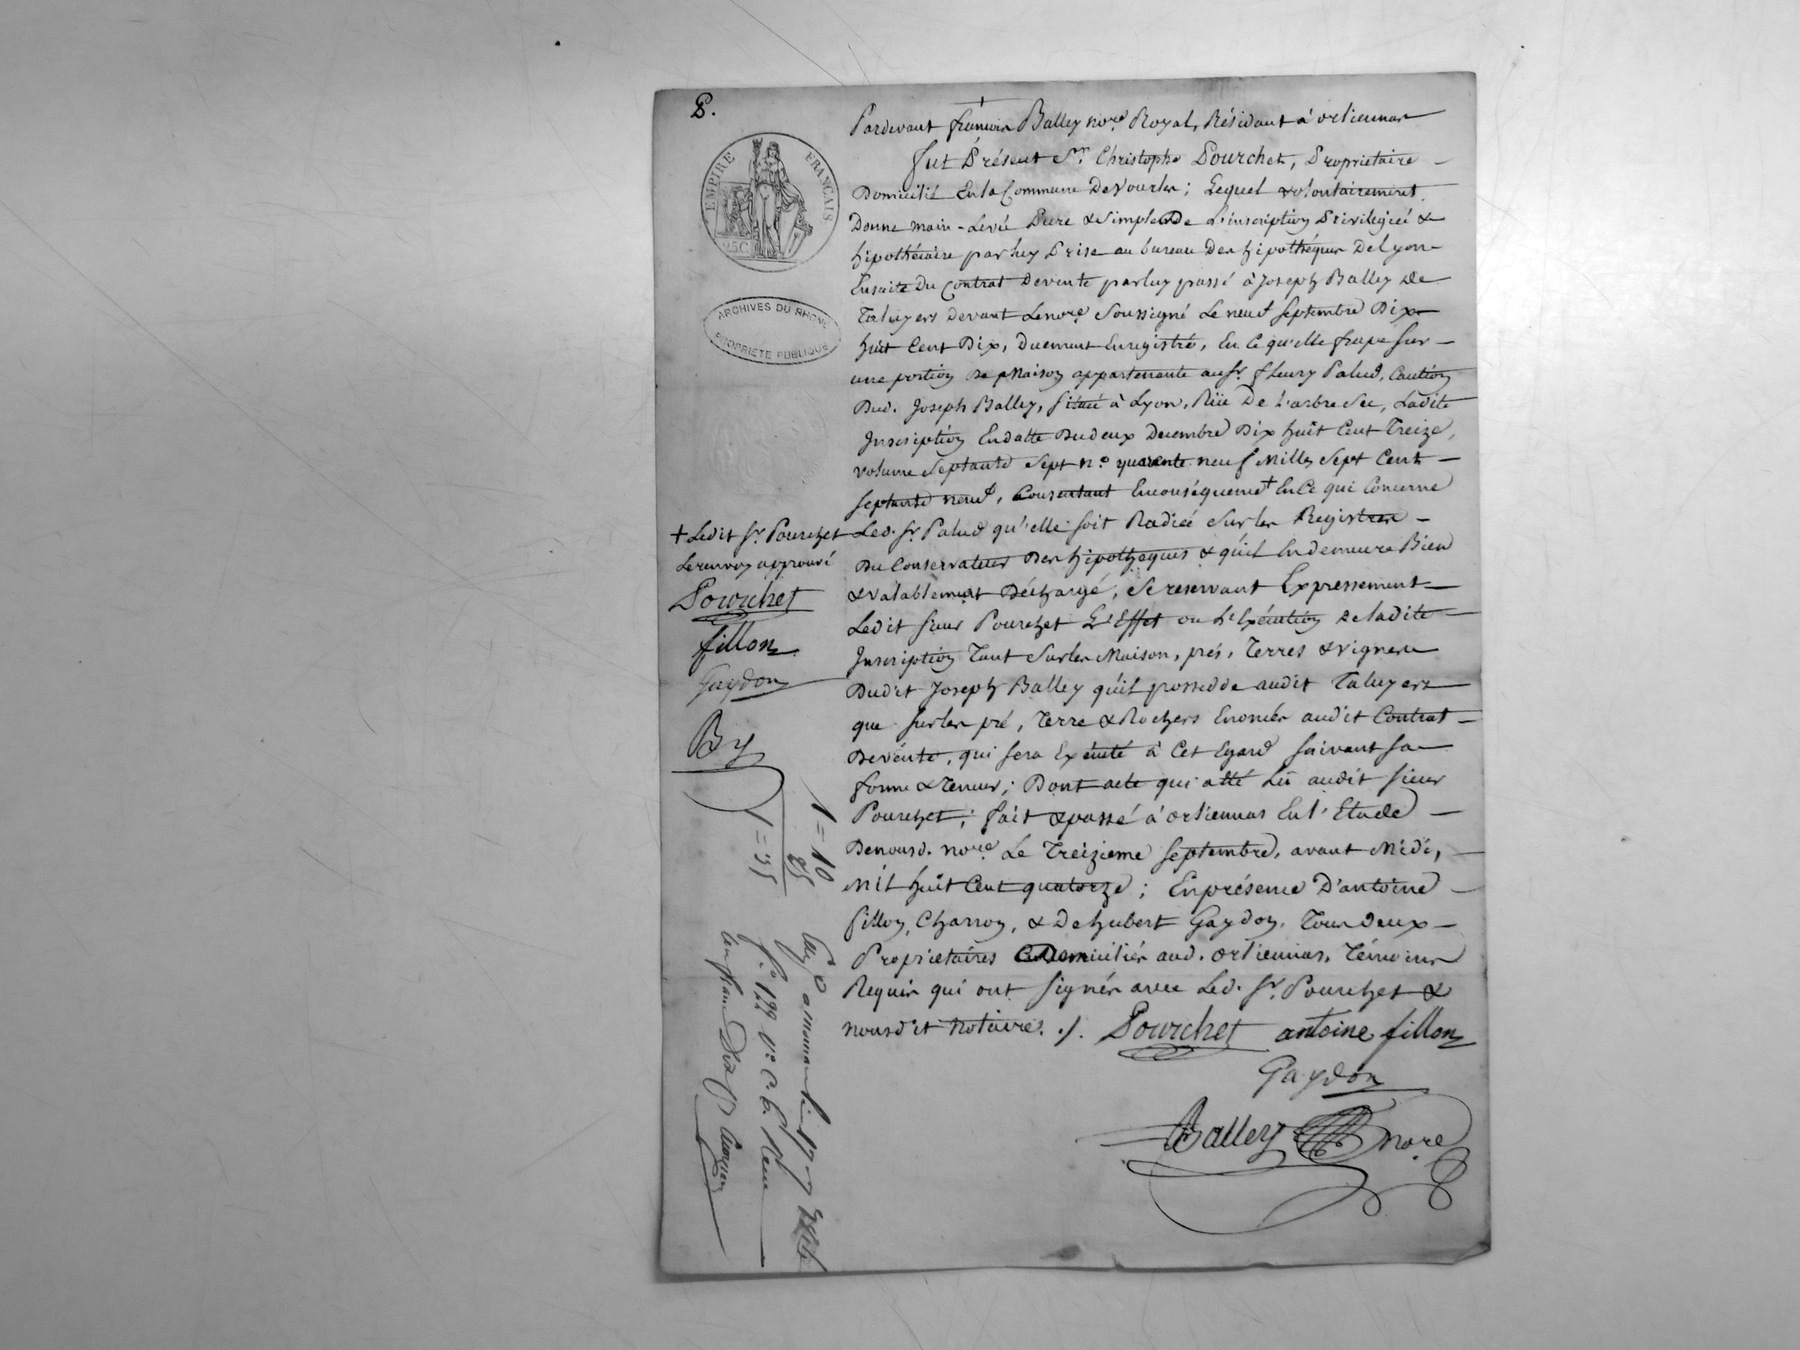 P.
EMPIRE FRANÇAIS
75C
ARCHIVES DU RHONE
PROPRIETE PUBLIQUE
Pardevant françois Balley no.re Royal, Résidant à orliennas
fut Présent S.r Christophe Pourchet, Proprietaire
Domicilié En la Commune De Vourles ; Lequel volontairement
Donne main-Levée Pure & Simple De L'inscription Privilégiée &
hipothécaire par luy Prise au bureau Des hipothéques De Lyon
Ensuite Du Contrat De vente par luy passé à Joseph Balley De
Taluyers devant Le no.re Soussigné Le neuf Septembre Dix
huit Cent Dix, Duement Enregistré, En Ce qu'elle frape Sur
une portion De Maison appartenante au S.r fleury Palud, Caution
Dud. Joseph Balley, Située à Lyon, Rüe De L'arbre Sec, Ladite
Inscription En datte Du deux Decembre Dix huit Cent Treize,
volume Septante Sept n.o quarente neuf Mille Sept Cent
Septante neuf, Consentant En conséquence + En Ce qui Concerne
Led. S.r Palud qu'elle soit Radiée Sur les Registres
Du Conservateur Des hipotheques & qu'il En demeure Bien
& valablement Déchargé, Se reservant Expressement
Ledit Sieur Pourchet L'Effet ou L'Exécution De ladite
Inscription Tant Sur les Maison, prés, Terres & vignes
Dudit Joseph Balley qu'il possedde audit Taluyers
que Sur les pré, Terre & Rochers Enoncés audit Contrat
De vente, qui Sera Exécuté à Cet Egard Suivant Sa
forme & Teneur ; Dont acte qui a été Lû audit Sieur
Pourchet ; fait & passé à orlienas En l'Etude
De nousd. no.re Le Treizieme Septembre, avant Midi,
Mil huit Cent quatorze ; En présence D'antoine
fillon, Charron, & De hubert Gaydon, Tous Deux
Proprietaires & Domiciliés aud. orliennas, Témoins
Requis qui ont Signés avec Led. S.r Pourchet &
nousdit notaire. ./. Pourchet antoine fillon
Gaydon
Balley no.re
+ Ledit S.r Pourchet
Le renvoy approuvé
Pourchet
fillon
Gaydon
By
1 = 10
25
1 = 35
f.o 122 v.o c. 6